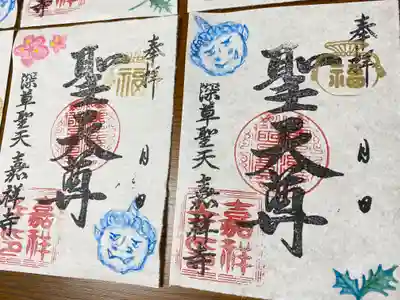 奉拝
聖天尊
月 日
深草聖天 嘉祥寺
福
嘉祥
奉拝
聖天尊
月 日
深草聖天 嘉祥寺
福
嘉祥
寺